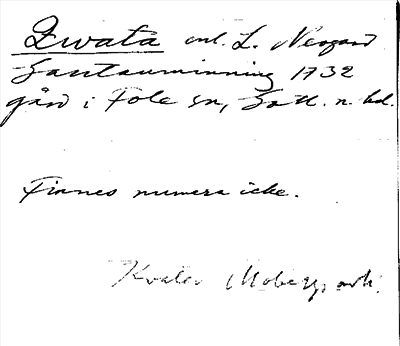 Qwata enl. L. Neogard
Gautauminning 1732
gård i Fole sn, Gotl. n. hd.
Finnes numera icke.
Moberg, ark.